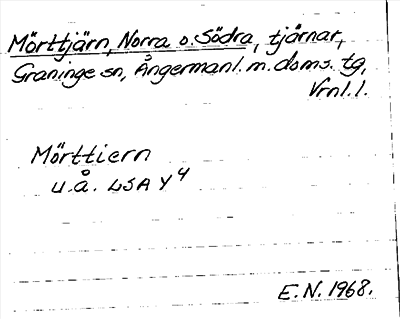 Mörttjärn, Norra o. Södra, tjärnar,
Graninge sn, Ångermanl. m. doms. tg,
Vrnl. l.
Mörttiern
u.å. LSA Y4
E.N. 1968.